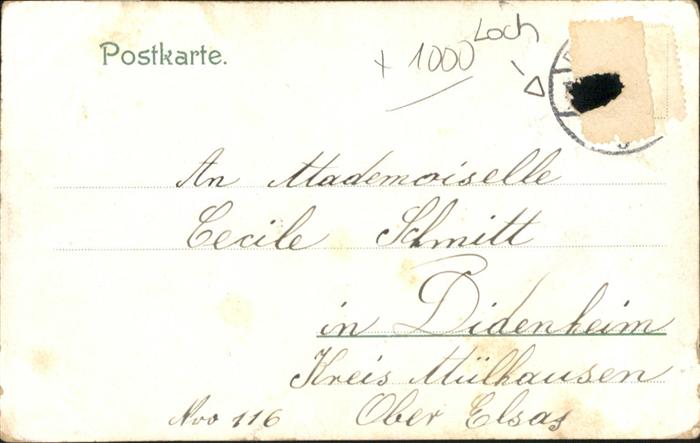 Postkarte.
+ 1000
Loch
An Mademoiselle
Cecile Schmitt
in Didenheim
Kreis Mülhausen
Nro 116 Ober Elsas